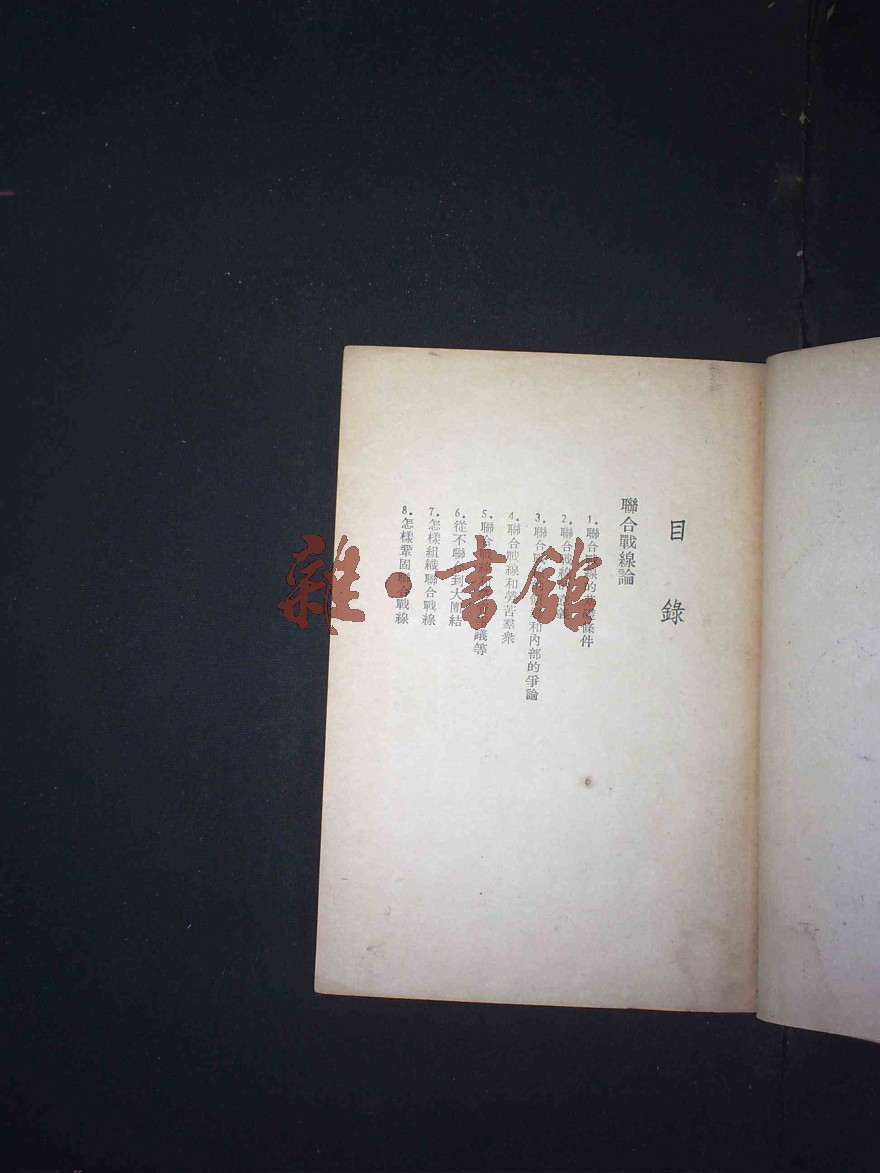 目錄
聯合戰線論
1.聯合戰線的基本條件
2.聯合戰線
3.聯合和內部的爭論
4.聯合戰線和勞苦羣衆
5.聯合議等
6.從不聯合到大團結
7.怎樣組織聯合戰線
8.怎樣鞏固聯合戰線
雜·書館